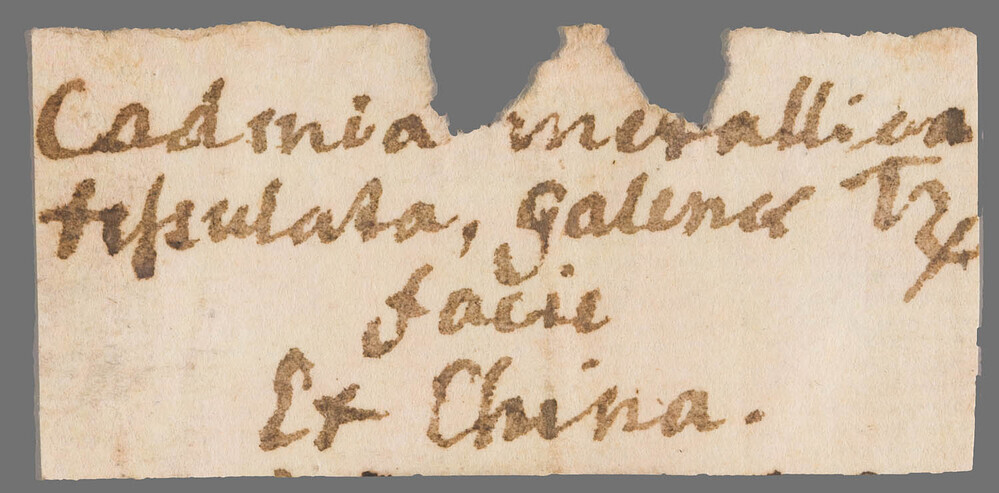 Cadmia metallica
tessulata, galenæ
facie
Ex China.